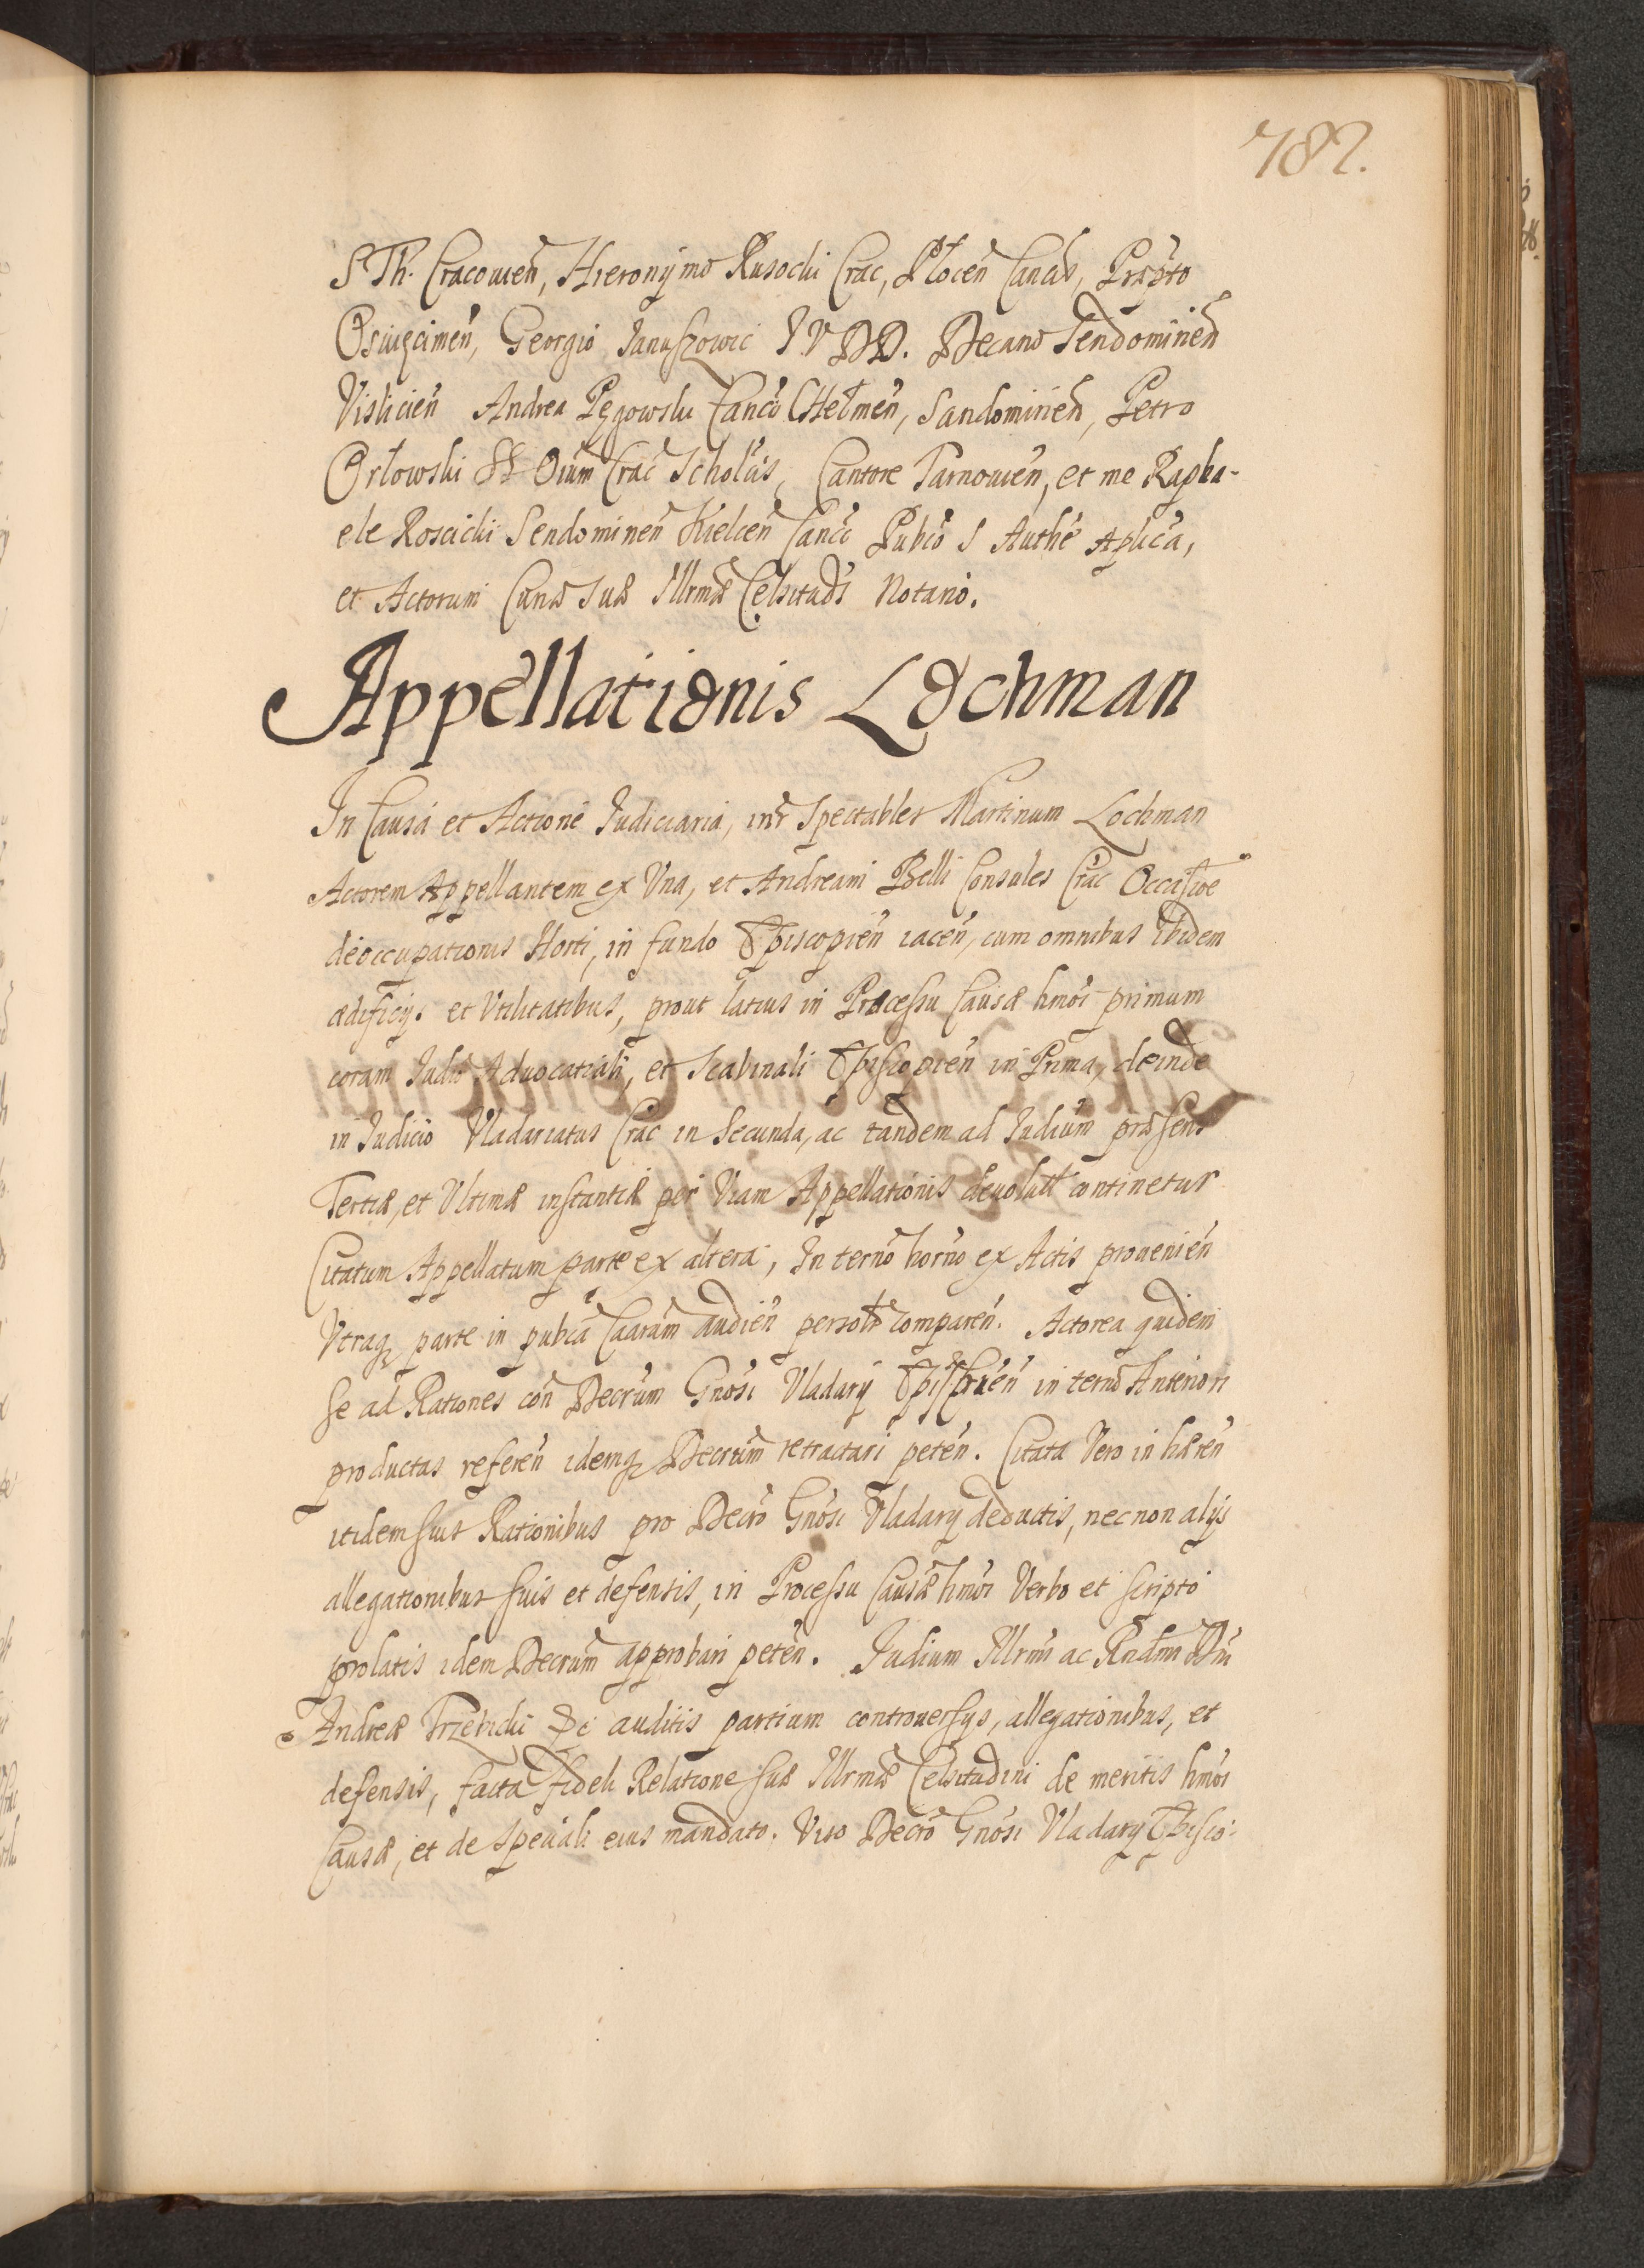 782.
S Th. Cracovien, Hieronymo Rusocki Crac, Plocen Canco, Prȩpto
Osiuȩcimen, Georgio Januszowic I V DD. Decano Sendominien
Vislicien Andrea Pęgowski Canco CHełmen, Sandominien, Petro
Orłowski SS Oium Crac Scholas, Cantore Tarnovien, et me Rapha-
ele Roscicki Sendominen Kielcen Canco Pubco S Authe Aplica,
et Actorum Curiæ Suæ Illrmæ Celsitudis Notario.
Appellationis Lochman
In Causa et Actione Judiciaria, intr Spectabiles Martinum Lochman
Actorem Appellantem ex Una, et Andream Belli Consules Crac Occasioe
deoccupationis Horti, in fundo Episcopien iacen, cum omnibus ibidem
ædificijs et Utilitatibus, prout latius in Processu Causæ hmoi primum
coram Judio Advocatiali, et Scabinali Episcopien in Prima, deinde
in Judicio Vladariatus Crac in Secunda, ac tandem ad Judium præsens
Tertiæ, et Ultimæ instantiæ per Viam Appellationis devolut continetur
Citatum Appellatum parte ex altera, In terno horno ex Actis provenien
Utraq parte in pubca Caarum audien personlr comparen. Actorea quidem
se ad Rationes con Decrum Gnosi Vladarij in terno Anteriori
productas referen idemq Decrum retractari peten. Citata Vero in hæren
itidem suis Rationibus pro Decro Gnosi Vladarij deductis, nec non alijs
allegationibus suis et defensis, in Processu Causæ hmoi Verbo et scripto
prolatis idem Decrum approbari peten. Judium Illrmi ac Rndmi Dni
Andreæ Trzebicki Dei auditis partium controversijs, allegationibus, et
defensis, facta fideli Relatione Suæ Illrmæ Celsitudini de meritis hmoi
Causæ, et de speciali eius mandato. Viso Decro Gnosi Vladarij Episco-